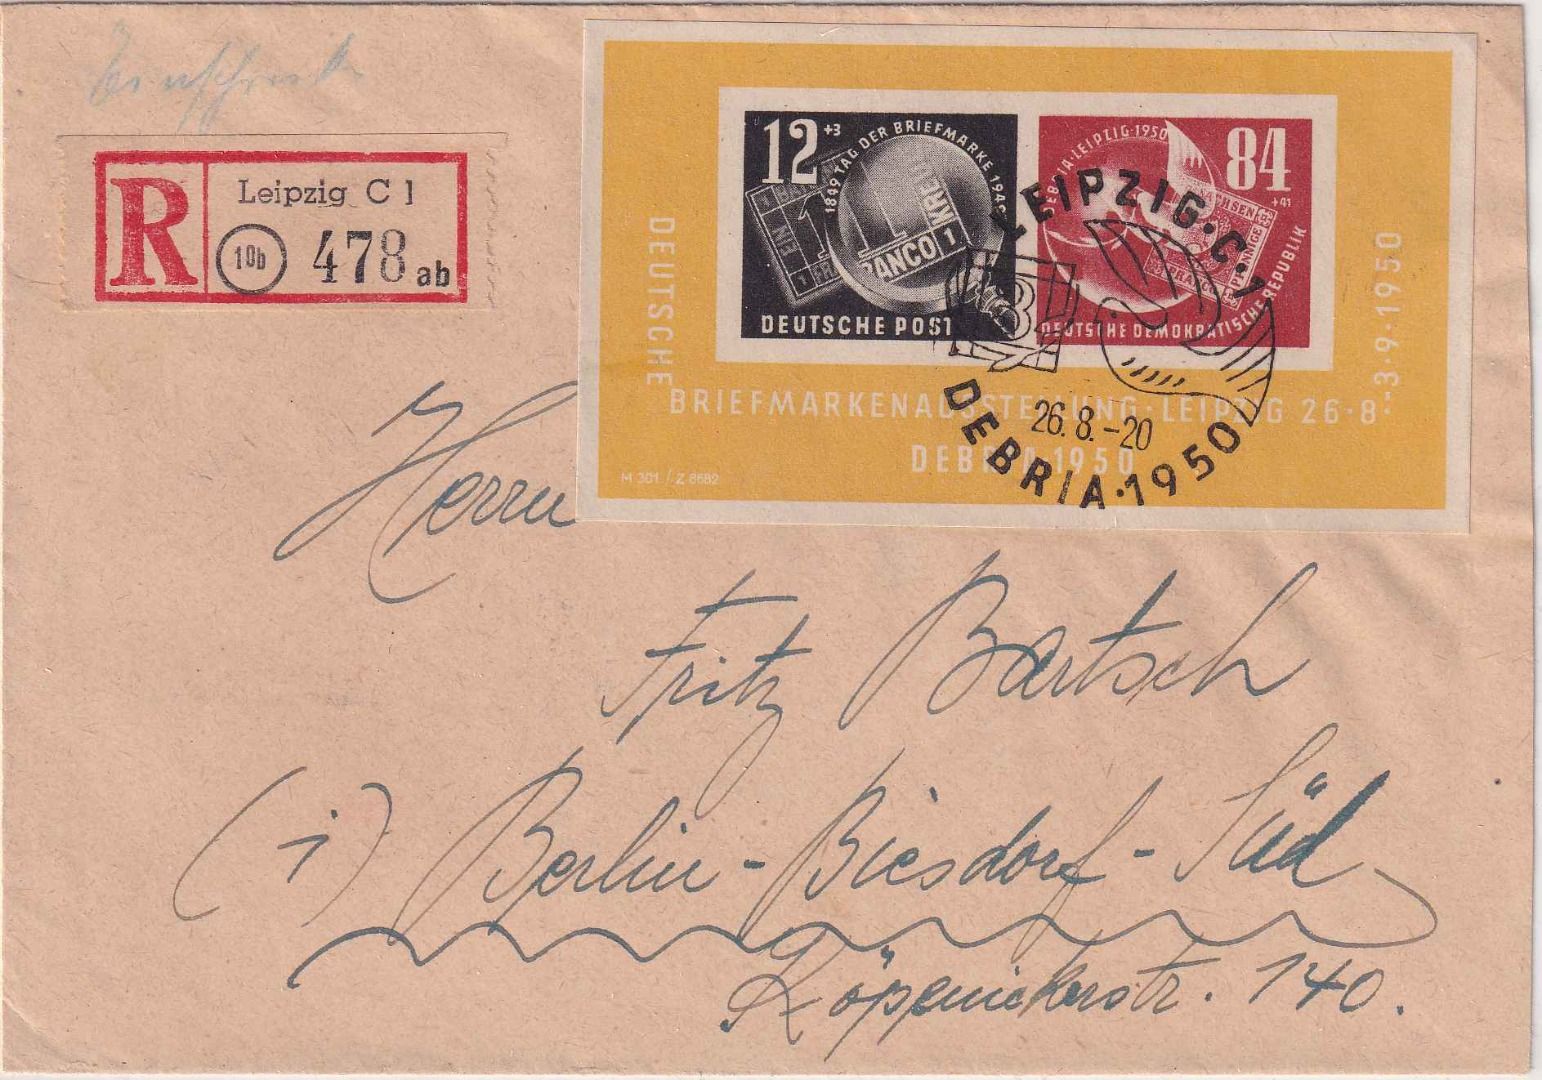 Einschreiben
R
Leipzig C 1
10b
478 ab
12 +3
1849 TAG DER BRIEFMARKE 1949
EIN
1
FRANCO 1
KREUZER
DEUTSCHE POST
84 +41
DEBRIA·LEIPZIG·1950
SACHSEN
PFENNIGE
FRANCO
DEUTSCHE DEMOKRATISCHE REPUBLIK
DEUTSCHE
BRIEFMARKENAUSSTELLUNG·LEIPZIG 26·8·-3·9·1950
DEBRIA 1950
M 301 / Z 8682
LEIPZIG·C·1
26.8.-20
DEBRIA·1950
Herrn
Fritz Bartsch
(1) Berlin-Biesdorf-Süd
Köpenickerstr. 140.